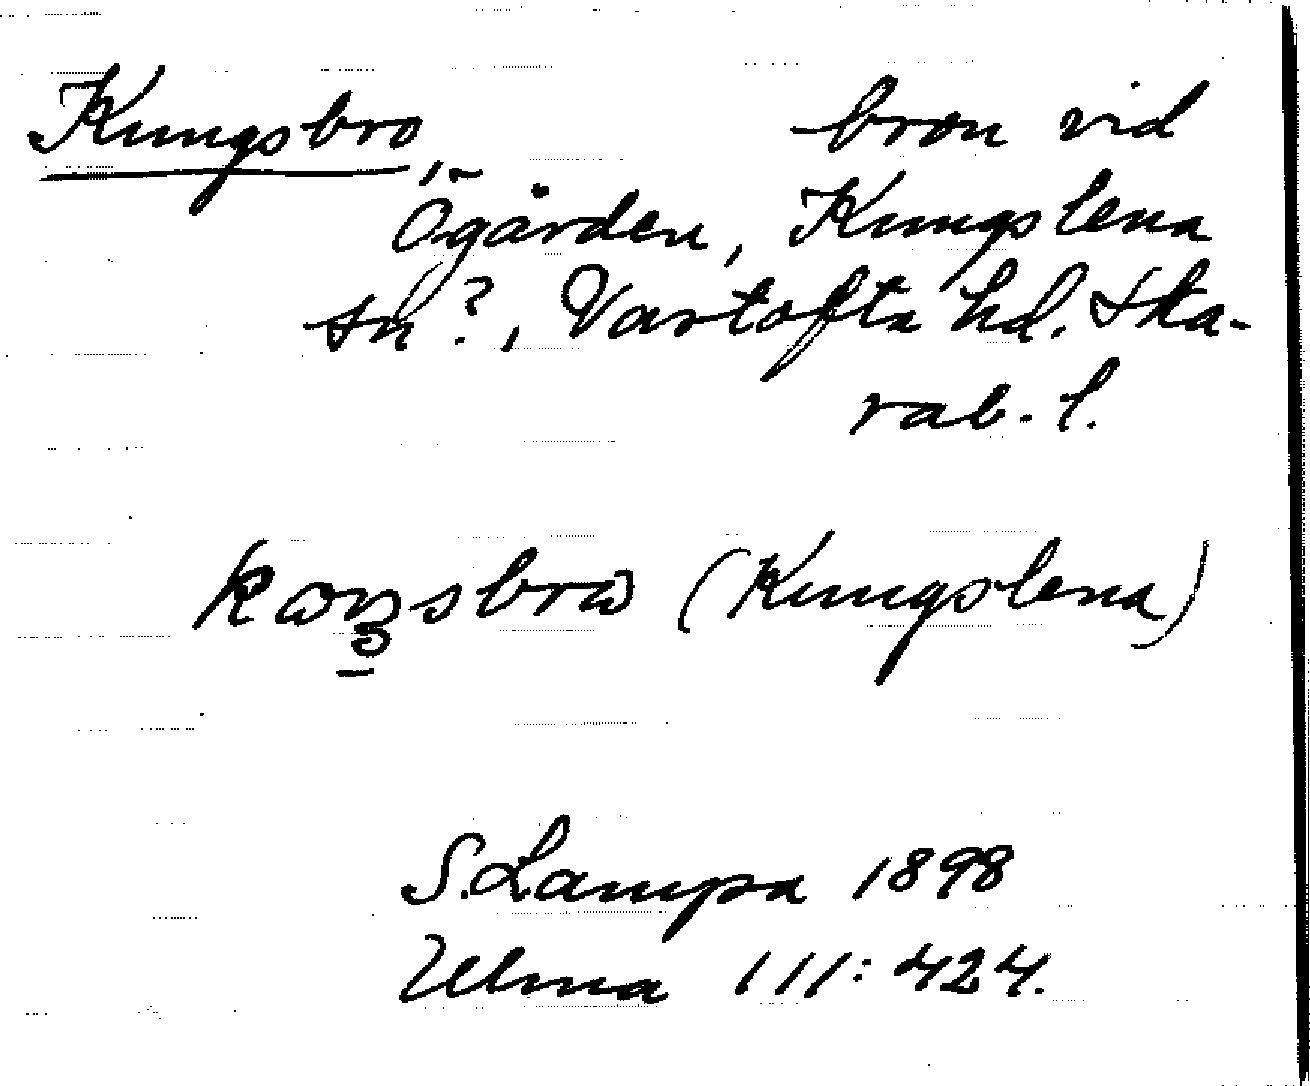 Kungsbro, bron vid
Ögården, Kungslena
sn?, Vartofta hd. Ska-
rab. l.
(Kungslena)
S. Lampa 1898
Ulma 111:424.